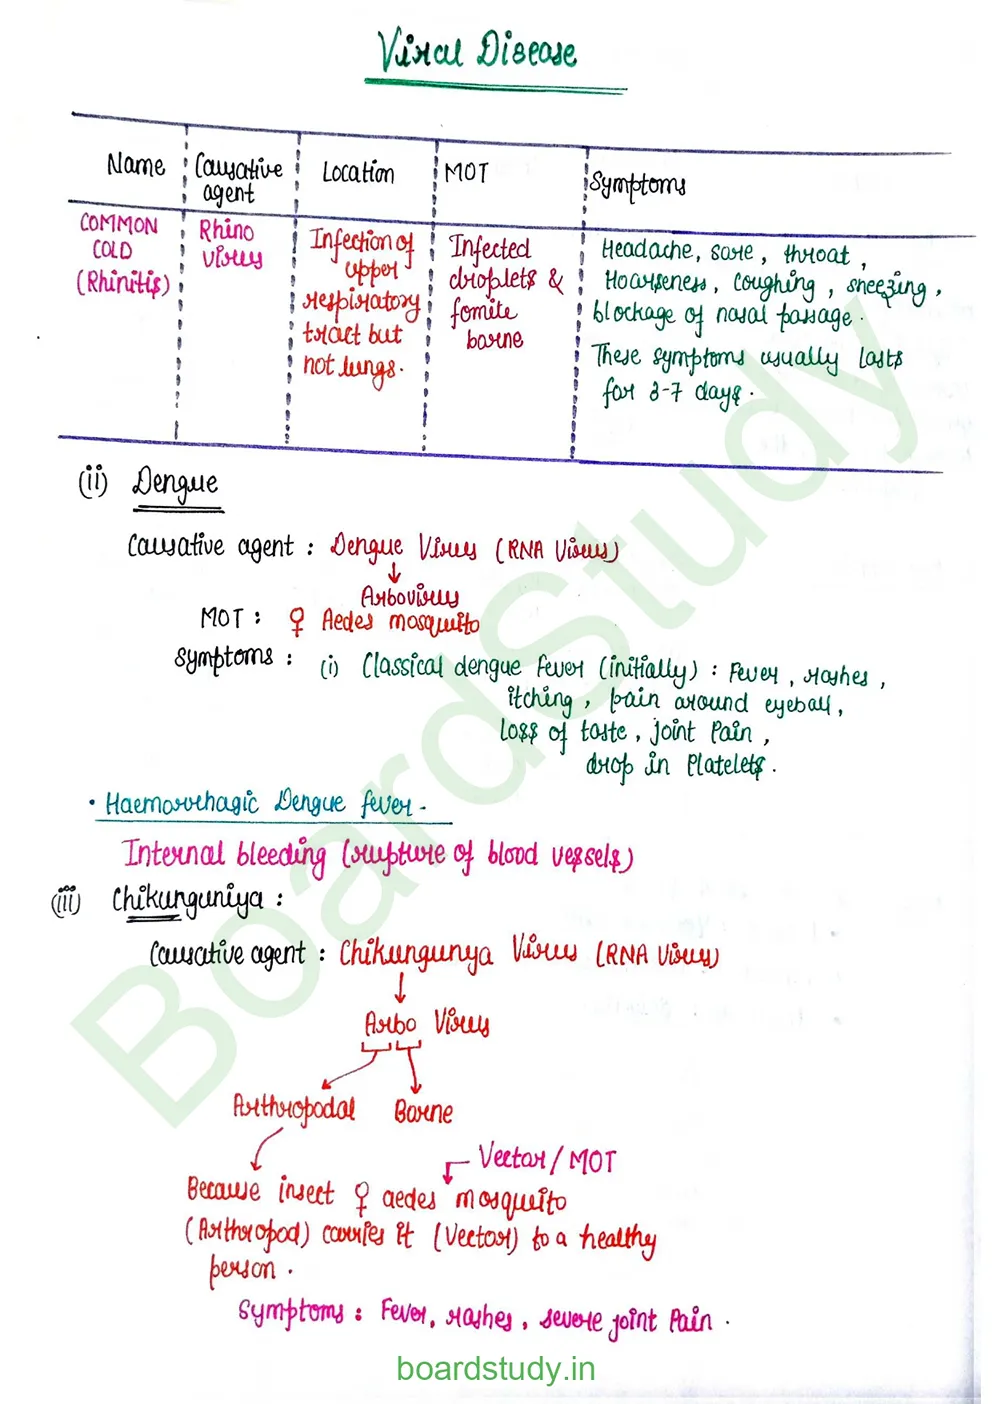 Viral Disease
Name
Causative
agent
Location
MOT
Symptoms
COMMON
COLD
(Rhinitis)
Rhino
virus
Infection of
upper
respiratory
tract but
not lungs.
Infected
droplets &
fomite
borne
Headache, sore, throat,
Hoarseness, coughing, sneezing,
blockage of nasal passage.
These symptoms usually lasts
for 3-7 days.
(ii) Dengue
Causative agent : Dengue Virus (RNA Virus)
↓
Arbovirus
MOT : ♀ Aedes mosquito
Symptoms : (i) Classical dengue fever (initially) : Fever, rashes,
itching, pain around eyeball,
loss of taste, joint Pain,
drop in Platelets.
• Haemorrhagic Dengue fever -
Internal bleeding (rupture of blood vessels)
(iii) Chikunguniya :
Causative agent : Chikungunya Virus (RNA Virus)
↓
Arbo Virus
Arthropodal Borne
Vector/MOT
Because insect ♀ aedes mosquito
(Arthropod) carries it (Vector) to a healthy
person.
Symptoms : Fever, rashes, severe joint Pain.
BoardStudy
boardstudy.in